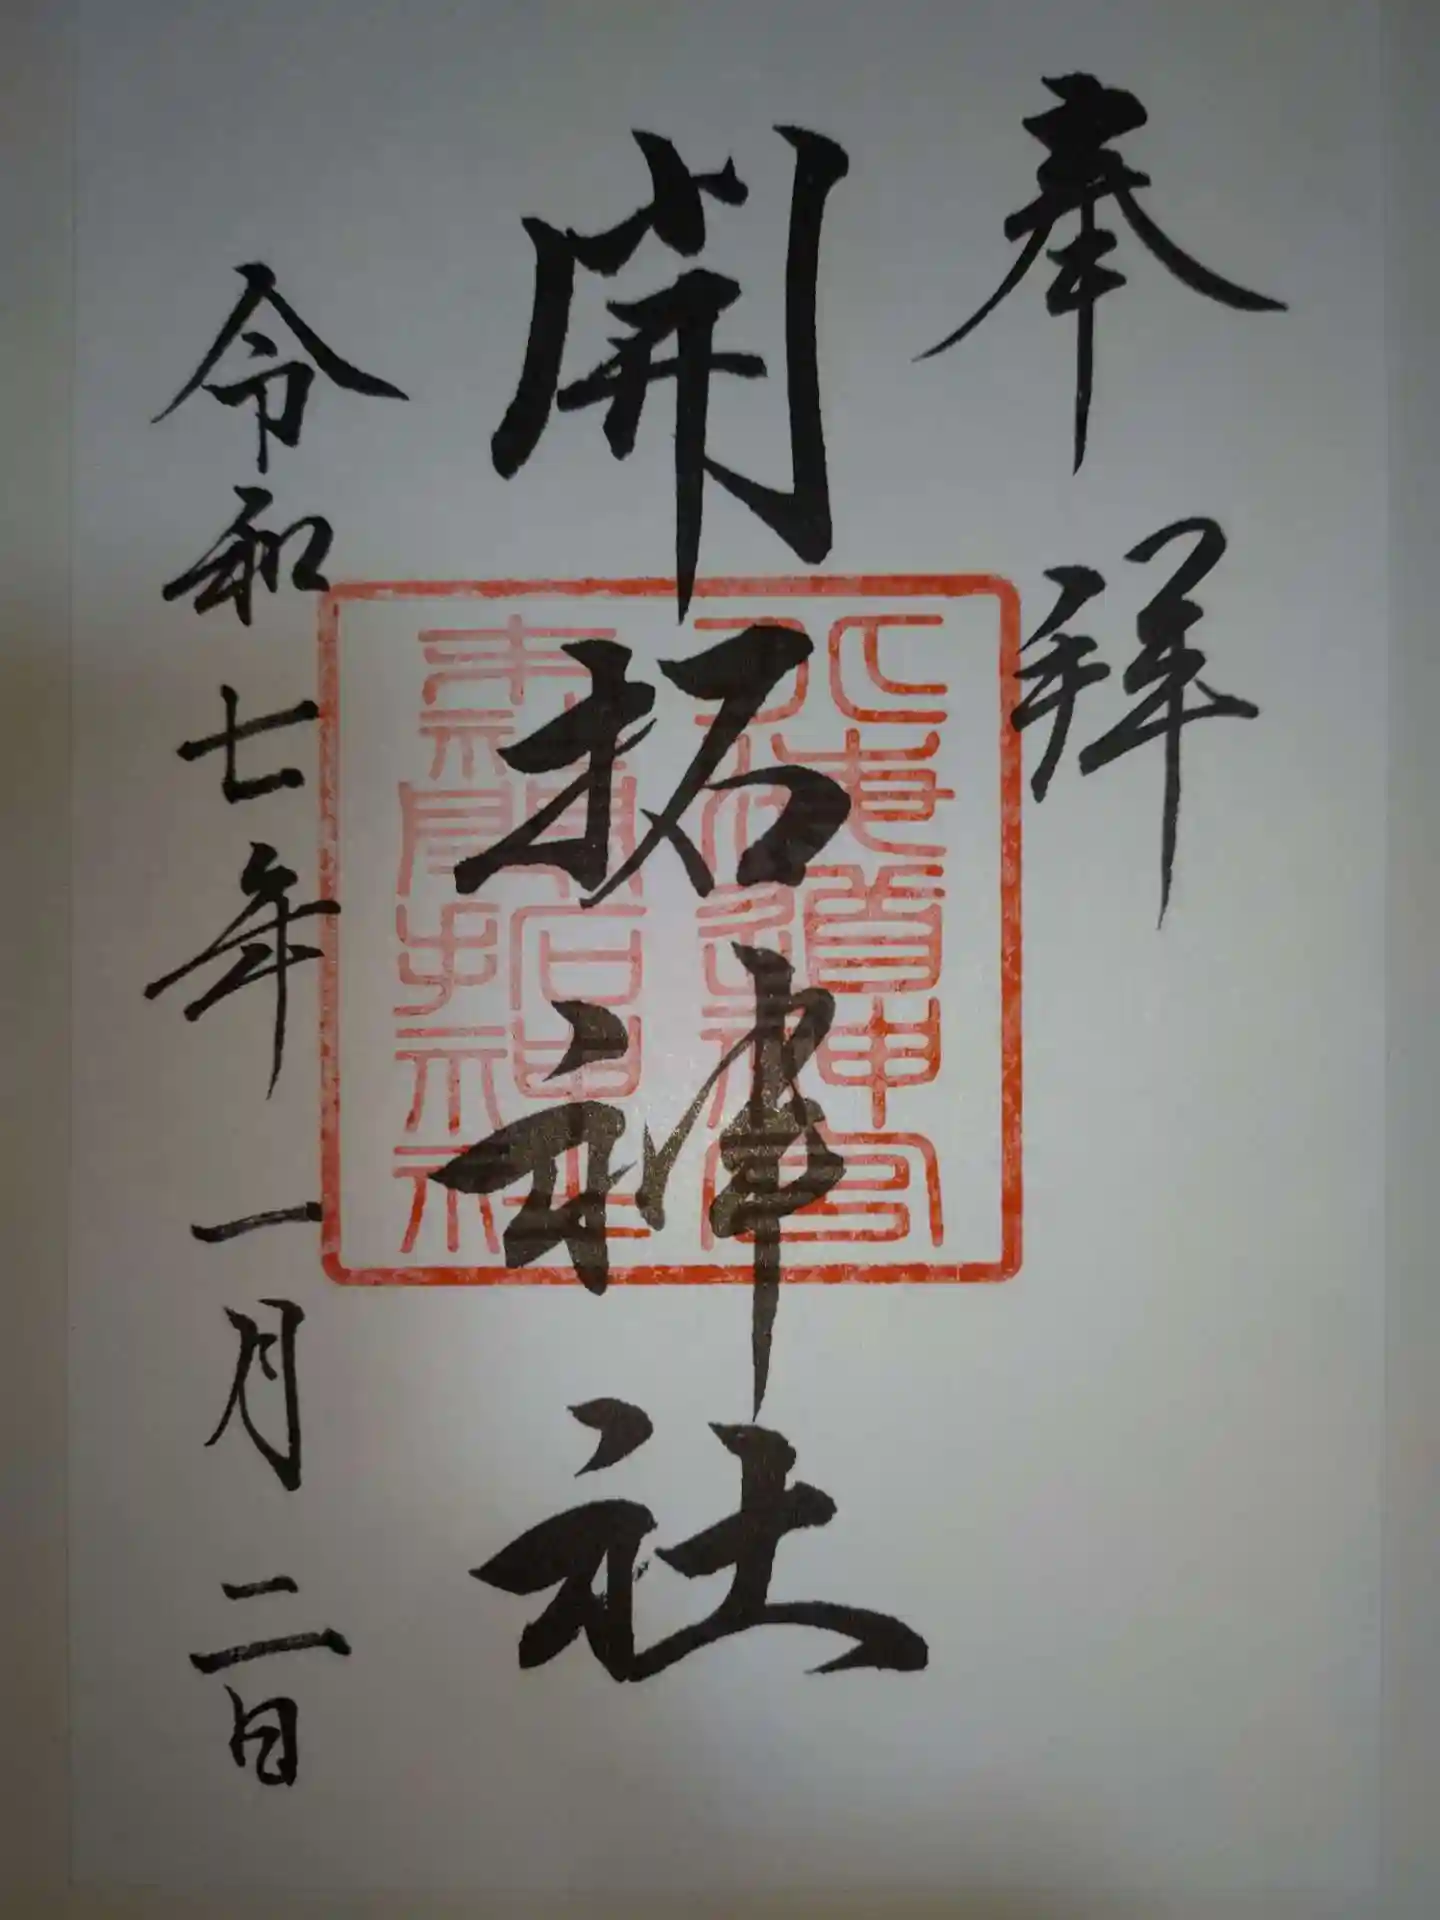 奉拝
開拓神社
北海道神宮
末社開拓神社
令和七年一月二日